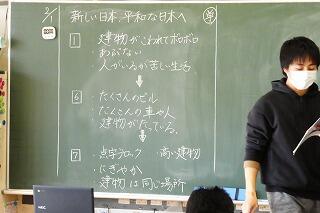 2/1 新しい日本、平和な日本へ
1 建物がこわれてボロボロ
・あぶない
・人がいるが苦しい生活
6 ・たくさんのビル
・たくさんの車や人
・建物がたっている。
7 ・点字ブロック ・高い建物
・にぎやか
・建物は同じ場所
NEC